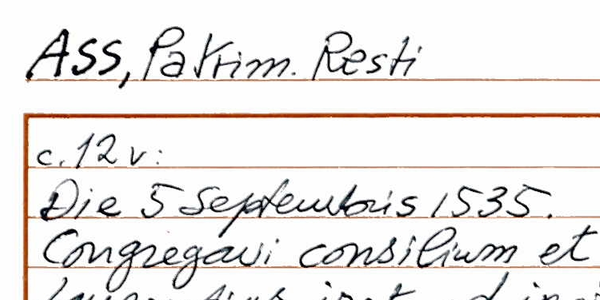 Ass, Patrim. Resti
c. 12 v:
Die 5 Septembris 1535.
Congregavi consilium et